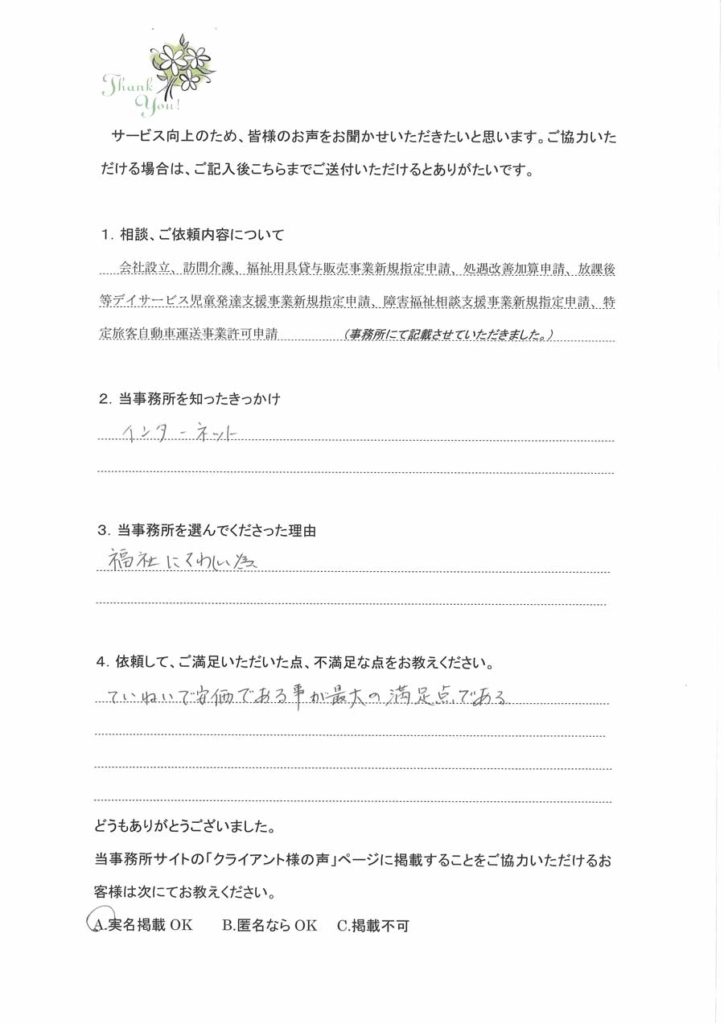 Thank
You!
サービス向上のため、皆様のお声をお聞かせいただきたいと思います。ご協力いた
だける場合は、ご記入後こちらまでご送付いただけるとありがたいです。
１．相談、ご依頼内容について
会社設立、訪問介護、福祉用具貸与販売事業新規指定申請、処遇改善加算申請、放課後
等デイサービス児童発達支援事業新規指定申請、障害福祉相談支援事業新規指定申請、特
定旅客自動車運送事業許可申請　（事務所にて記載させていただきました。）
２．当事務所を知ったきっかけ
インターネット
３．当事務所を選んでくださった理由
福祉にくわしい為
４．依頼して、ご満足いただいた点、不満足な点をお教えください。
ていねいで安価である事が最大の満足点である
どうもありがとうございました。
当事務所サイトの「クライアント様の声」ページに掲載することをご協力いただけるお
客様は次にてお教えください。
A.実名掲載 OK　B.匿名なら OK　C.掲載不可